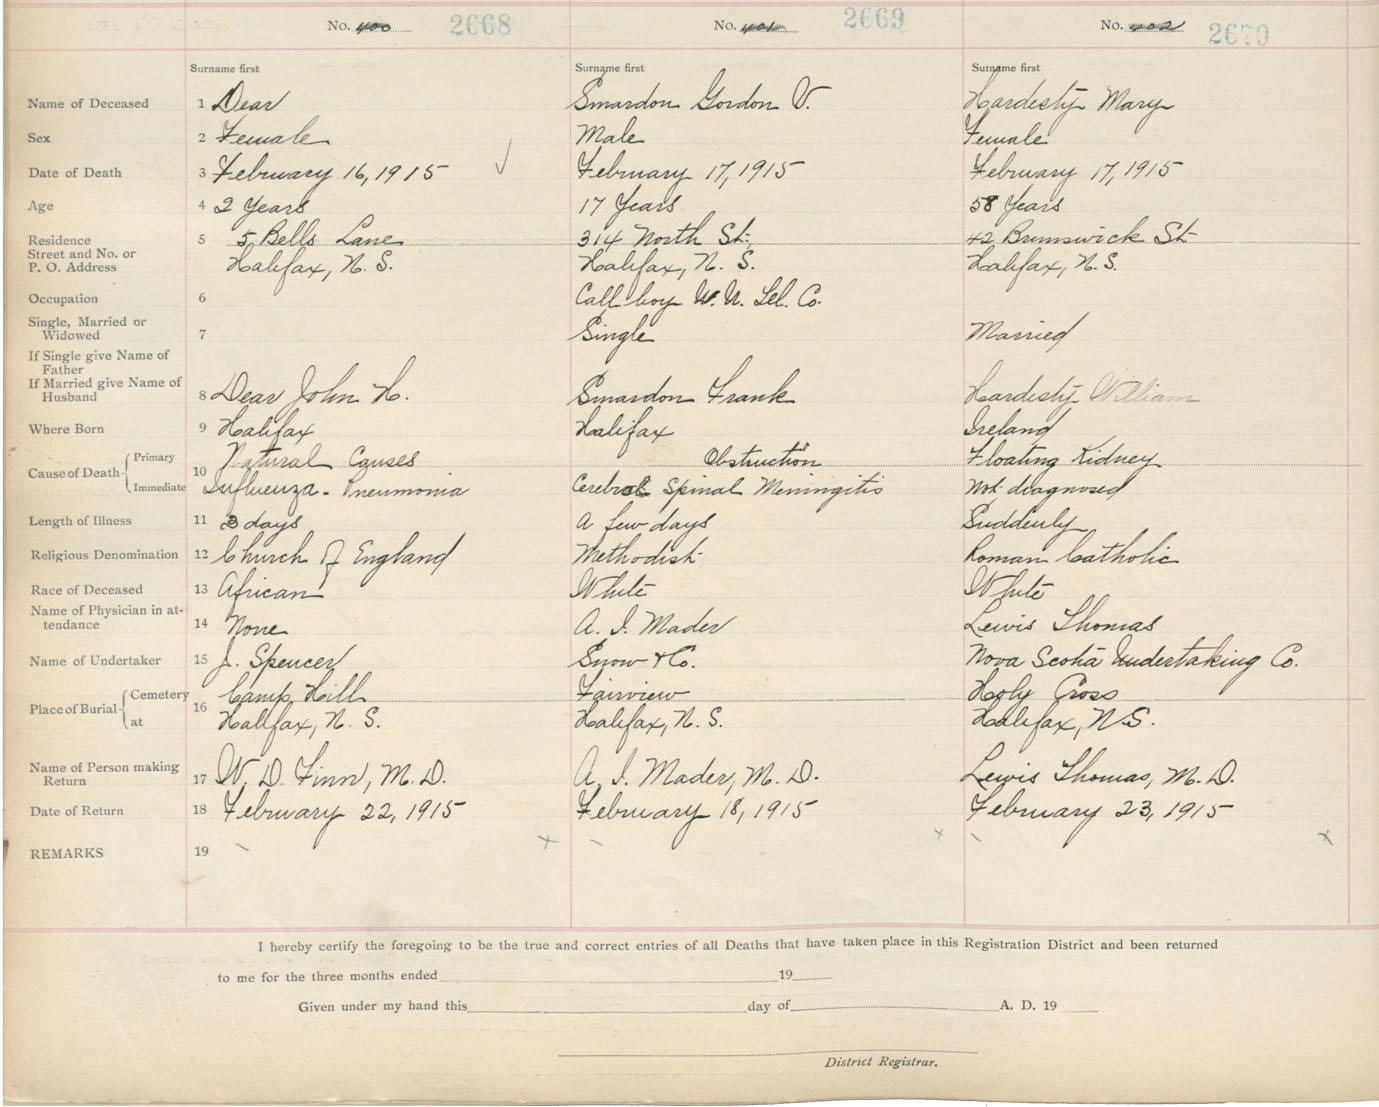 No. 400 2668 No. 401 2669 No. 402 2670
Surname first Surname first Surname first
Name of Deceased 1 Dear Smardon Gordon V. Hardesty Mary
Sex 2 Female Male Female
Date of Death 3 February 16, 1915 February 17, 1915 February 17, 1915
Age 4 2 Years 17 Years 58 Years
Residence 5 5 Bells Lane 314 North St. 42 Brunswick St
Street and No. or
P. O. Address Halifax, N. S. Halifax, N. S. Halifax, N. S.
Occupation 6 Call boy W. U. Tel. Co.
Single, Married or
Widowed 7 Single Married
If Single give Name of
Father
If Married give Name of
Husband 8 Dear John H. Smardon Frank Hardesty William
Where Born 9 Halifax Halifax Ireland
Cause of Death Primary 10 Natural Causes Obstruction Floating Kidney
Immediate Influenza - Pneumonia Cerebral Spinal Meningitis Not diagnosed
Length of Illness 11 3 days A few days Suddenly
Religious Denomination 12 Church of England Methodist Roman Catholic
Race of Deceased 13 African White White
Name of Physician in at-
tendance 14 None A. I. Mader Lewis Thomas
Name of Undertaker 15 J. Spencer Snow & Co. Nova Scotia Undertaking Co.
Place of Burial Cemetery 16 Camp Hill Fairview Holy Cross
at Halifax, N. S. Halifax, N. S. Halifax, N.S.
Name of Person making
Return 17 W. D. Finn, M. D. A. I. Mader, M. D. Lewis Thomas, M. D.
Date of Return 18 February 22, 1915 February 18, 1915 February 23, 1915
REMARKS 19
I hereby certify the foregoing to be the true and correct entries of all Deaths that have taken place in this Registration District and been returned
to me for the three months ended 19
Given under my hand this day of A. D. 19
District Registrar.